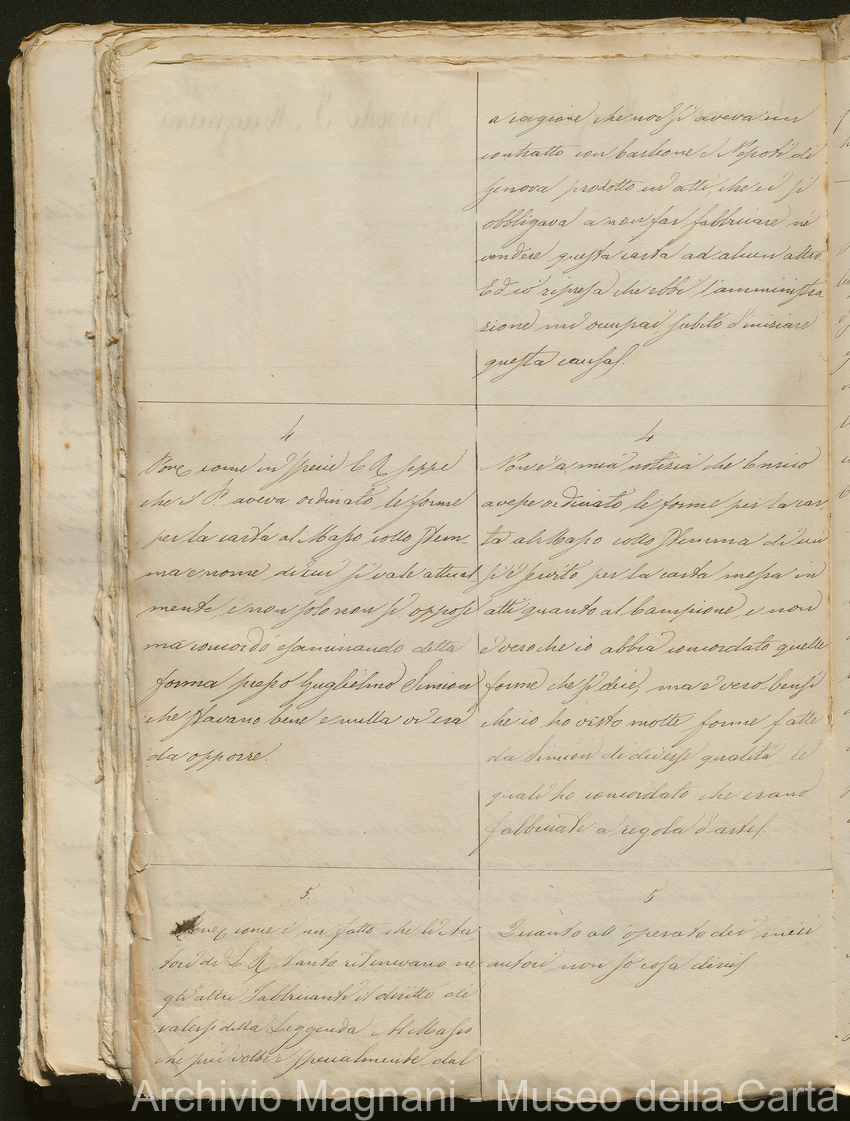 a cagione che non si aveva un
contratto con Carbone e Nepoti di
Genova prodotto in atti, che ci si
obbligava a non far fabbricare nè
vendere questa carta ad alcun altro
Ed io ripresa che ebbi l'amministra
zione mi occupai subito d'iniziare
questa causa.
4
Pone come in specie L R seppe
che S P. aveva ordinato le forme
per la carta al Masso collo stem-
ma e nome di cui si vale attual
mente e non solo non si oppose
ma concordò esaminando detta
forma presso Guglielmo Simion
che stavano bene e nulla vi era
da opporre.
4
Non è a mia notizia che Enrico
avesse ordinato le forme per la car
ta al Masso collo stemma di cui
si è servito per la carta messa in
atti quanto al Campione, e non
è vero che io abbia concordato quelle
forme che si dice, ma è vero bensì
che io ho visto molte forme fatte
da Simion di diverse qualità le
quali ho concordato che erano
fabbricate a regola d'arte.
5.
Pone come è un fatto che li Au
tori di L R. tanto ritenevano ne
gli altri Fabbricanti il diritto di
valersi della Leggenda Al Masso
che più volte e specialmente dal
5
Quanto all'operato dei miei
autori non so cosa dire
Archivio Magnani - Museo della Carta